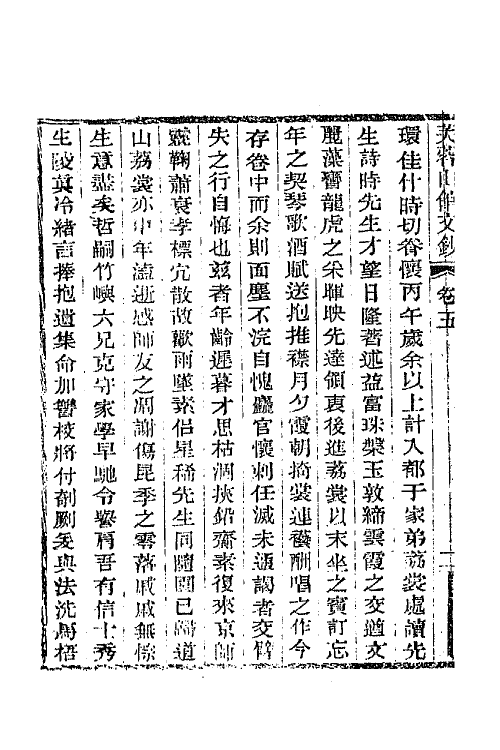 芙蓉山館文鈔 卷五
環佳什時切眷懷丙午歲余以上計入都于家弟荔裳處讀先
生詩時先生才望日隆著述益富珠槃玉敦締雲霞之交遒文
麗藻奮龍虎之采暉映先達領袖後進荔裳以末坐之賓訂忘
年之契琴歌酒賦送抱推襟月夕霞朝掎裳連襼酬唱之作今
存卷中而余則面塵不浣自愧麤官懷刺任滅未通謁者交臂
失之行自悔也茲者年齡遲暮才思枯涸挾鉛齋素復來京師
靈鞠蕭衰孝標宂散故歡雨墜素侶星稀先生同隨園已歸道
山荔裳亦中年溘逝感師友之凋謝傷昆季之零落戚戚無悰
生意盡矣哲嗣竹嶼六兄克守家學早馳令譽肩吾有信士秀
生陵眞冷緒言捧抱遺集命加讐校將付剞劂爰與法沈馬梧